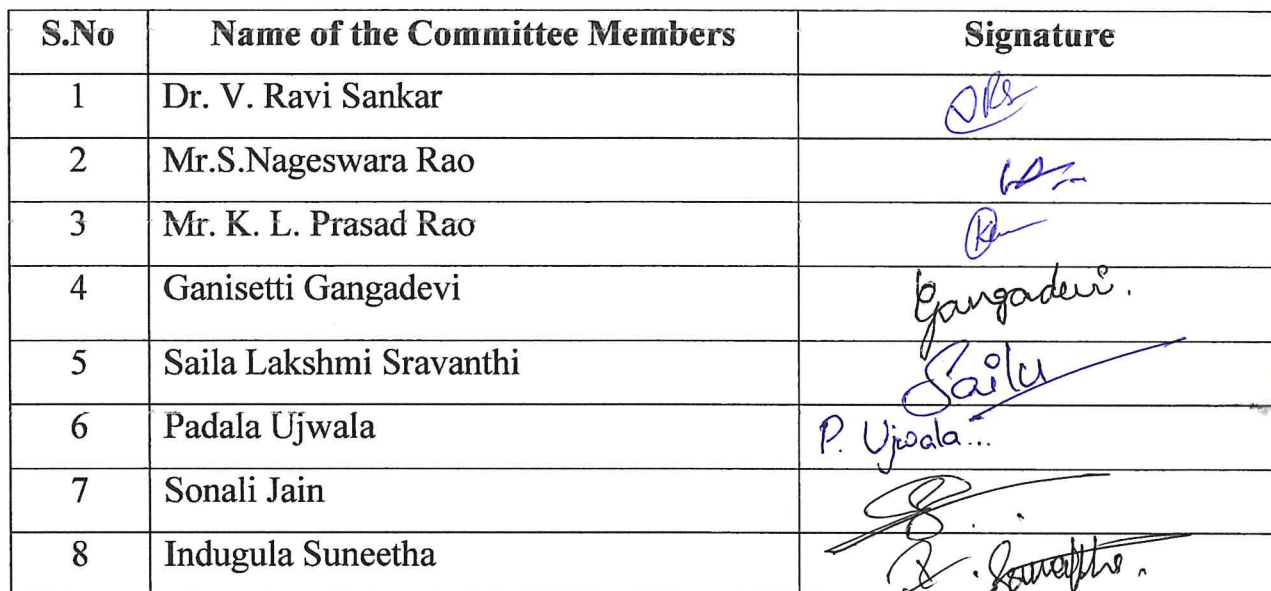 S.No Name of the Committee Members Signature
1 Dr. V. Ravi Sankar
2 Mr.S.Nageswara Rao
3 Mr. K. L. Prasad Rao
4 Ganisetti Gangadevi Gangadevi.
5 Saila Lakshmi Sravanthi Sailu
6 Padala Ujwala P. Ujwala...
7 Sonali Jain
8 Indugula Suneetha